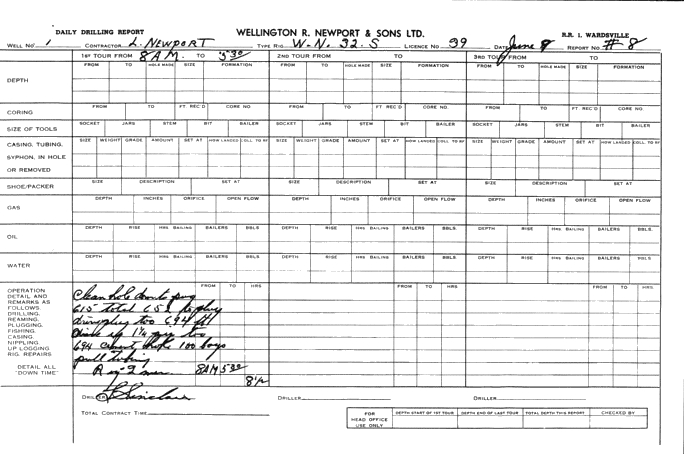 DAILY DRILLING REPORT WELLINGTON R. NEWPORT & SONS LTD. R.R. 1. WARDSVILLE
WELL NO. 1 CONTRACTOR L. NEWPORT TYPE RIG W-N. 32-S LICENCE NO. 99 DATE June 8 REPORT NO. # 8
1ST TOUR FROM 8 A.M. TO 5 30 2ND TOUR FROM TO 3RD TOUR FROM TO
FROM TO HOLE MADE SIZE FORMATION FROM TO HOLE MADE SIZE FORMATION FROM TO HOLE MADE SIZE FORMATION
DEPTH
FROM TO FT. REC'D CORE NO. FROM TO FT. REC'D CORE NO. FROM TO FT. REC'D CORE NO.
CORING
SOCKET JARS STEM BIT BAILER SOCKET JARS STEM BIT BAILER SOCKET JARS STEM BIT BAILER
SIZE OF TOOLS
SIZE WEIGHT GRADE AMOUNT SET AT HOW LANDED COLL. TO RF SIZE WEIGHT GRADE AMOUNT SET AT HOW LANDED COLL. TO RF SIZE WEIGHT GRADE AMOUNT SET AT HOW LANDED COLL. TO RF
CASING. TUBING.
SYPHON, IN HOLE
OR REMOVED
SIZE DESCRIPTION SET AT SIZE DESCRIPTION SET AT SIZE DESCRIPTION SET AT
SHOE/PACKER
DEPTH INCHES ORIFICE OPEN FLOW DEPTH INCHES ORIFICE OPEN FLOW DEPTH INCHES ORIFICE OPEN FLOW
GAS
DEPTH RISE HRS BAILING BAILERS BBLS. DEPTH RISE HRS BAILING BAILERS BBLS. DEPTH RISE HRS BAILING BAILERS BBLS.
OIL
DEPTH RISE HRS BAILING BAILERS BBLS. DEPTH RISE HRS BAILING BAILERS BBLS. DEPTH RISE HRS BAILING BAILERS BBLS.
WATER
FROM TO HRS FROM TO HRS FROM TO HRS.
OPERATION
DETAIL AND
REMARKS AS
FOLLOWS
DRILLING.
REAMING.
PLUGGING.
FISHING.
CASING.
NIPPLING.
UP LOGGING
RIG. REPAIRS
DETAIL ALL
"DOWN TIME"
Clean hole down to plug
615 total 651
plug too 694 ft
1¼ too
694 cement hole 100 bags
pull tubing
2 men 8AM 5 30
8½
DRILLER Sinclair DRILLER DRILLER
TOTAL CONTRACT TIME
FOR HEAD OFFICE USE ONLY
DEPTH START OF 1ST TOUR DEPTH END OF LAST TOUR TOTAL DEPTH THIS REPORT CHECKED BY